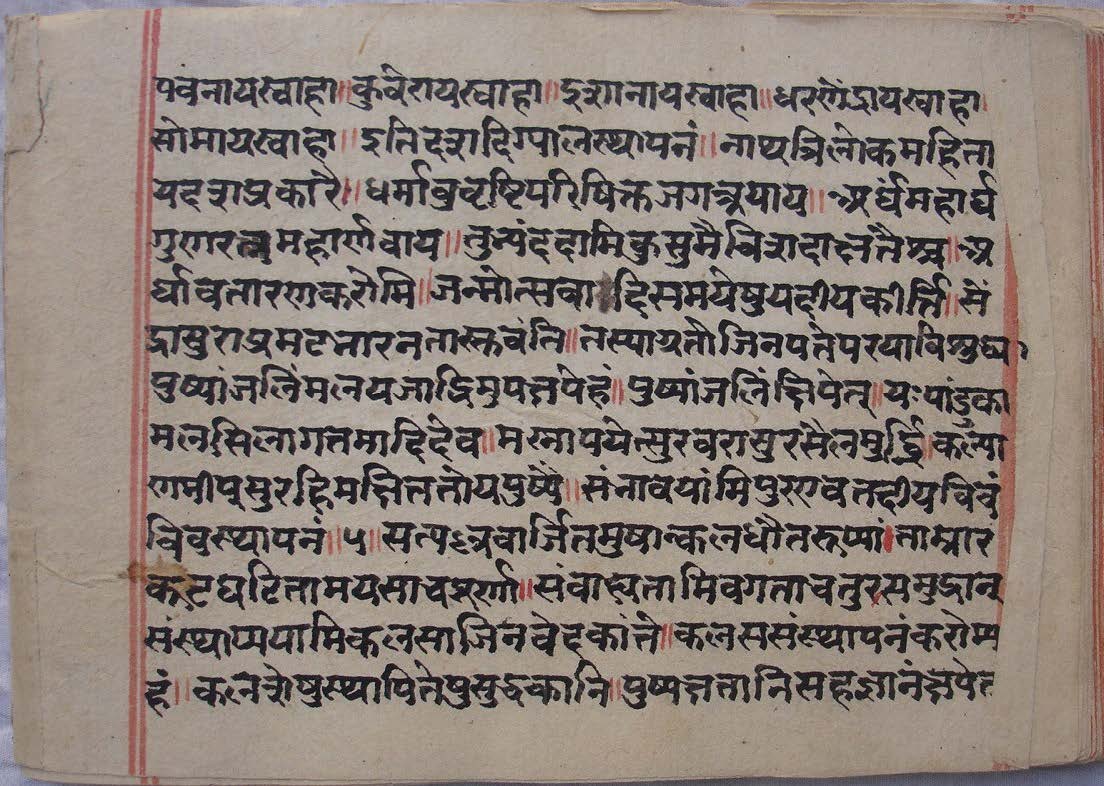 पवनायस्वाहा॥कुवेरायस्वाहा॥इशानायस्वाहा॥धरणेंद्रायस्वाहा॥
सोमायस्वाहा॥इतिदशदिग्पालस्थापनं॥नाथत्रिलोकमहिता
यदशप्रकारै॥धर्मांवुवृष्टिपरिषिक्तजगत्रयाय॥अर्घंमहार्घ
गुणरत्नमहार्णवाय॥तुभ्यंददामिकुसुमैविशदाक्षतैश्च॥अ
र्घावतारणकरोमि॥जन्मोत्सवा दिसमयेषुयदीयकीर्त्ति॥सें
द्रासुराप्रमदनारनतास्तवंति॥तस्याग्रतोजिनपतेपरयाविशुद्ध्या
पुष्पांजलिंमलयजाद्रिमुपक्षपेहं॥पुष्पांजलिंक्षिपेत्॥यःपांडुका
मलसिलागतमादिदेव॥मस्नापयेत्सुरवरासुरसैलमुर्द्ध्नि॥कल्या
णमीपसुरहिमक्षिततोयपुष्पै॥संनावयांमिपुरएवतदीयविंवं
विवस्थापनं॥५॥सत्पल्लवार्जितमुषान्कलधौतरुप्यां।ताम्रार
कूटघटितामयसावपूर्णा॥संवाह्यतामिवगताचतुरसमुद्रान्
संस्थाप्ययामिकलसाजिनवेदकांते॥कलससंस्थापनंकरोम्य
हं॥कलशेषुस्थापितेपुसुदकानि॥पुष्पाक्षतानिसहज्ञानंक्षपेत